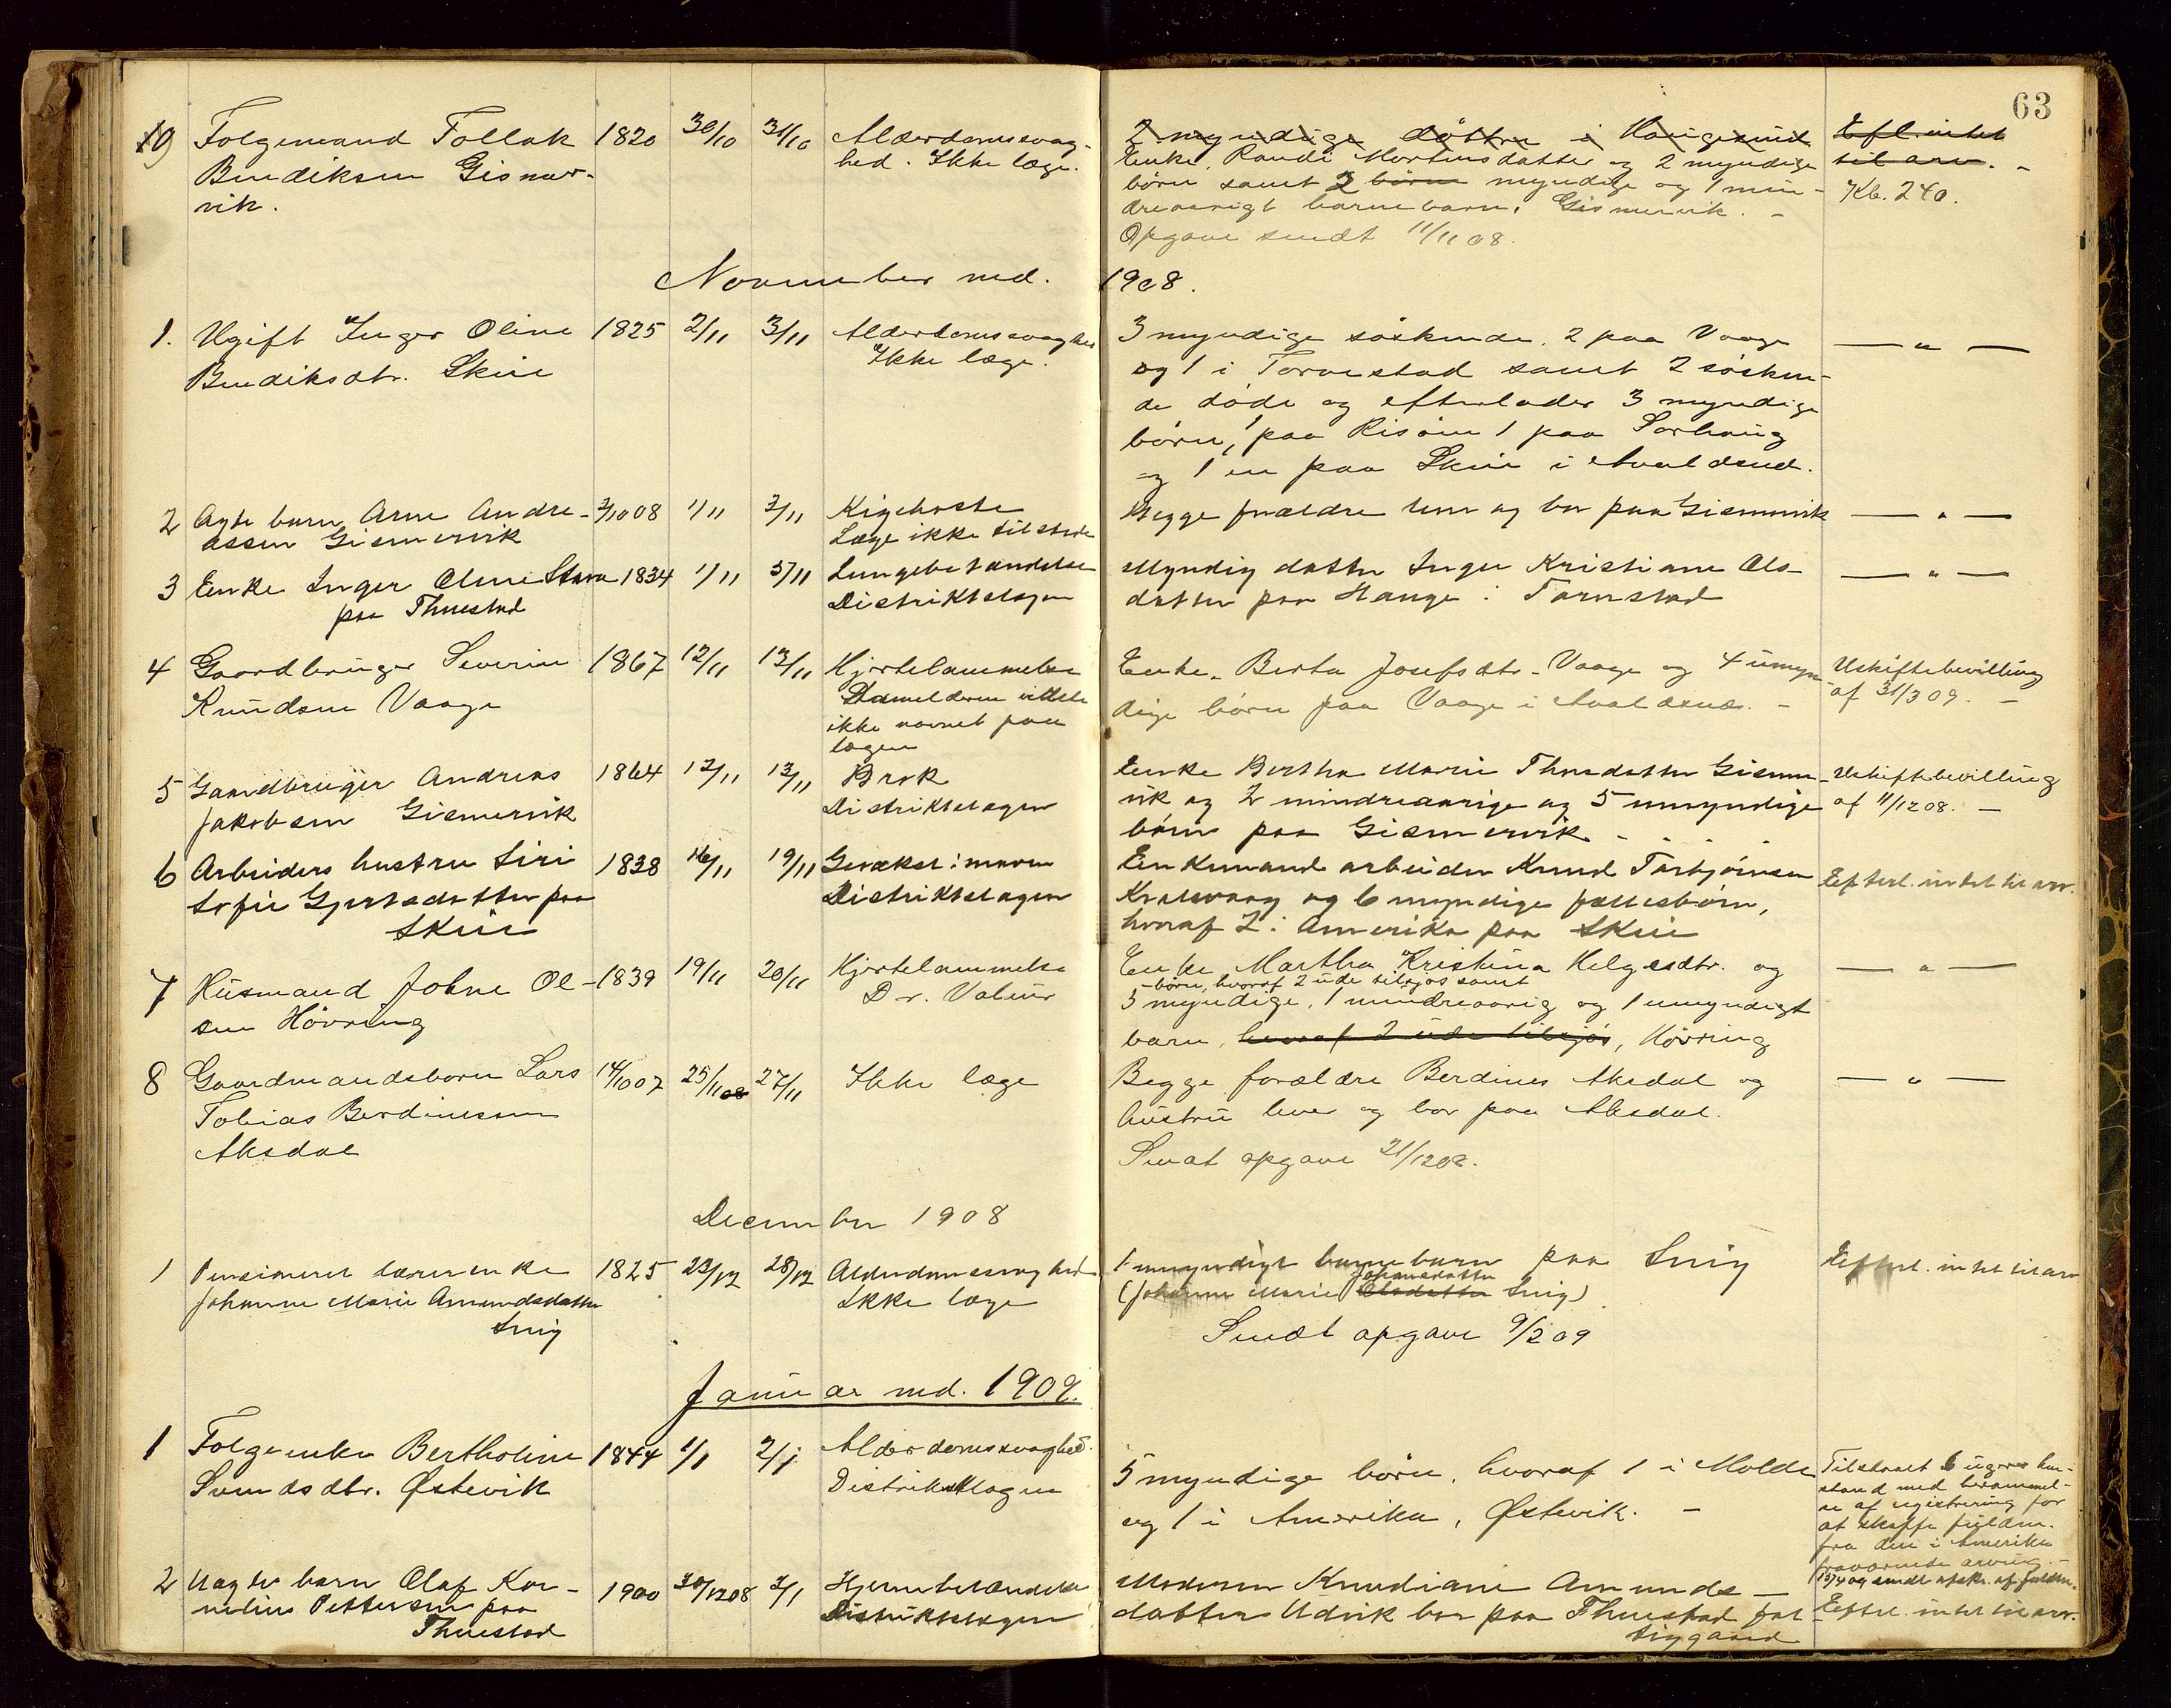 63
19 Folgemand Tollak 1820 30/10 31/10 Alderdomssvag-
Bendiksen Gismer- hed. Ikke læge.
vik.
2 myndige døttre i Haugesund
Enke Randi Mortensdatter og 2 myndige
børn samt 2 børn myndige og 1 min-
dreaarigt barnebarn, Gismervik. -
Opgave sendt 11/11 08.
Efl. intet
til arv. -
Kb. 240.
November md. 1908.
1. Ugift Inger Oline 1825 2/11 3/11 Alderdomssvaghed
Bendiksdtr. Skeie Ikke læge.
3 myndige søskende. 2 paa Vaage
og 1 i Torvestad samt 2 søsken-
de døde og efterlader 3 myndige
børn, 1 paa Risøen 1 paa Sørhaug
og 1 en paa Skeie i Avaldsnes.
— " —
2 Ægte barn Arne Andre- 3/10 08 1/11 3/11 Kighoste
assen Gismervik Læge ikke tilstede
Begge forældre lever og bor paa Gismervik — " —
3 Enke Inger Oline Stava 1834 1/11 5/11 Lungebetændelse
paa Thuestad Distriktslægen
Myndig datter Inger Kristiane Ols-
datter paa Hauge i Torvestad
— " —
4 Gaardbruger Severin 1867 12/11 13/11 Hjertelammelse
Knudsen Vaage Anmelderen vidste
ikke navnet paa
lægen
Enke. Berta Josefsdtr. Vaage og 4 umyn-
dige børn paa Vaage i Avaldsnes. -
Uskiftebevilling
af 31/3 09. -
5 Gaardbruger Andreas 1864 12/11 13/11 Brok
Jakobsen Gismervik Distriktslægen
Enke Bertha Marie Thoresdatter Gismer-
vik og 2 mindreaarige og 5 umyndige
børn paa Gismervik -
Uskiftebevilling
af 11/12 08. -
6 Arbeiders hustru Siri 1838 16/11 19/11 Gevækst i maven
Sofie Gjertsdatter paa Distriktslægen
Skeie
Enkemand arbeider Knud Torbjørnsen
Kvalevaag og 6 myndige fællesbørn,
hvoraf 2 i Amerika paa Skeie
Efterl. intet til arv.
7 Husmand Johne Ol- 1839 19/11 20/11 Hjertelammelse
sen Høvring Dr. Valeur
Enke Martha Kristina Helgesdtr. og
- børn, hvoraf 2 ude tilsjøs samt
5 myndige, 1 mindreaarig og 1 umyndigt
barn, hvoraf 2 ude tilsjøs, Høvring
— " —
8 Gaardmandsbarn Lars 14/10 07 25/11 08 27/11 Ikke læge
Tobias Berdinessen
Aksdal
Begge forældre Berdines Aksdal og
hustru lever og bor paa Aksdal.
Sendt opgave 31/12 08.
— " —
December 1908
1 Pensioneret lærerenke 1825 23/12 28/12 Alderdomssvaghed
Johanne Marie Amundsdatter Ikke læge
Snig
1 umyndigt barnebarn paa Snig
Johansdatter
(Johanne Marie Olsdatter Snig)
Sendt opgave 9/2 09
Efterl. intet til arv
Januar md. 1909.
1 Folgeenke Bertholine 1844 1/1 2/1 Alderdomssvaghed.
Svendsdtr. Østevik Distriktslægen
5 myndige børn, hvoraf 1 i Molde
og 1 i Amerika, Østevik. -
Tilstaaet 6 ugers hen-
stand med berammel-
se af registrering for
at skaffe fuldm.
fra den i Amerika
fraværende arving. -
13/4 09 sendt afskr. af fuldm.
2 Uægte barn Olaf Kor- 1900 30/12 08 2/1 Hjernebetændelse
nelius Pettersen paa Distriktslægen
Thuestad
Moderen Knudiane Amunds-
datter Udvik bor paa Thuestad fat-
tiggaard
Efterl. intet til arv.